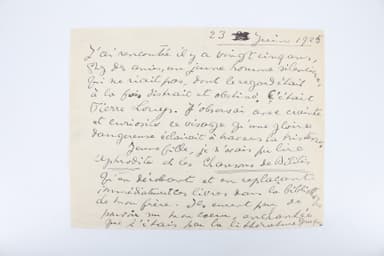 23 Juin 1925
J'ai rencontré il y a vingt cinq ans,
chez des amis, un jeune homme silencieux
qui ne riait pas, dont le regard était
à la fois distrait et obstiné. C'était
Pierre Louÿs. J'observais avec crainte
et curiosité ce visage qu'une gloire
dangereuse éclairait
Jeune fille, je n'avais pu lire
Aphrodite et les Chansons de Bilitis
qu'en dérobant et en replaçant
immédiatement ces livres dans la bibliothèque
de mon frère. Ils eurent peu de
sur mon cœur, enchantée
que j'étais par la littérature grecque